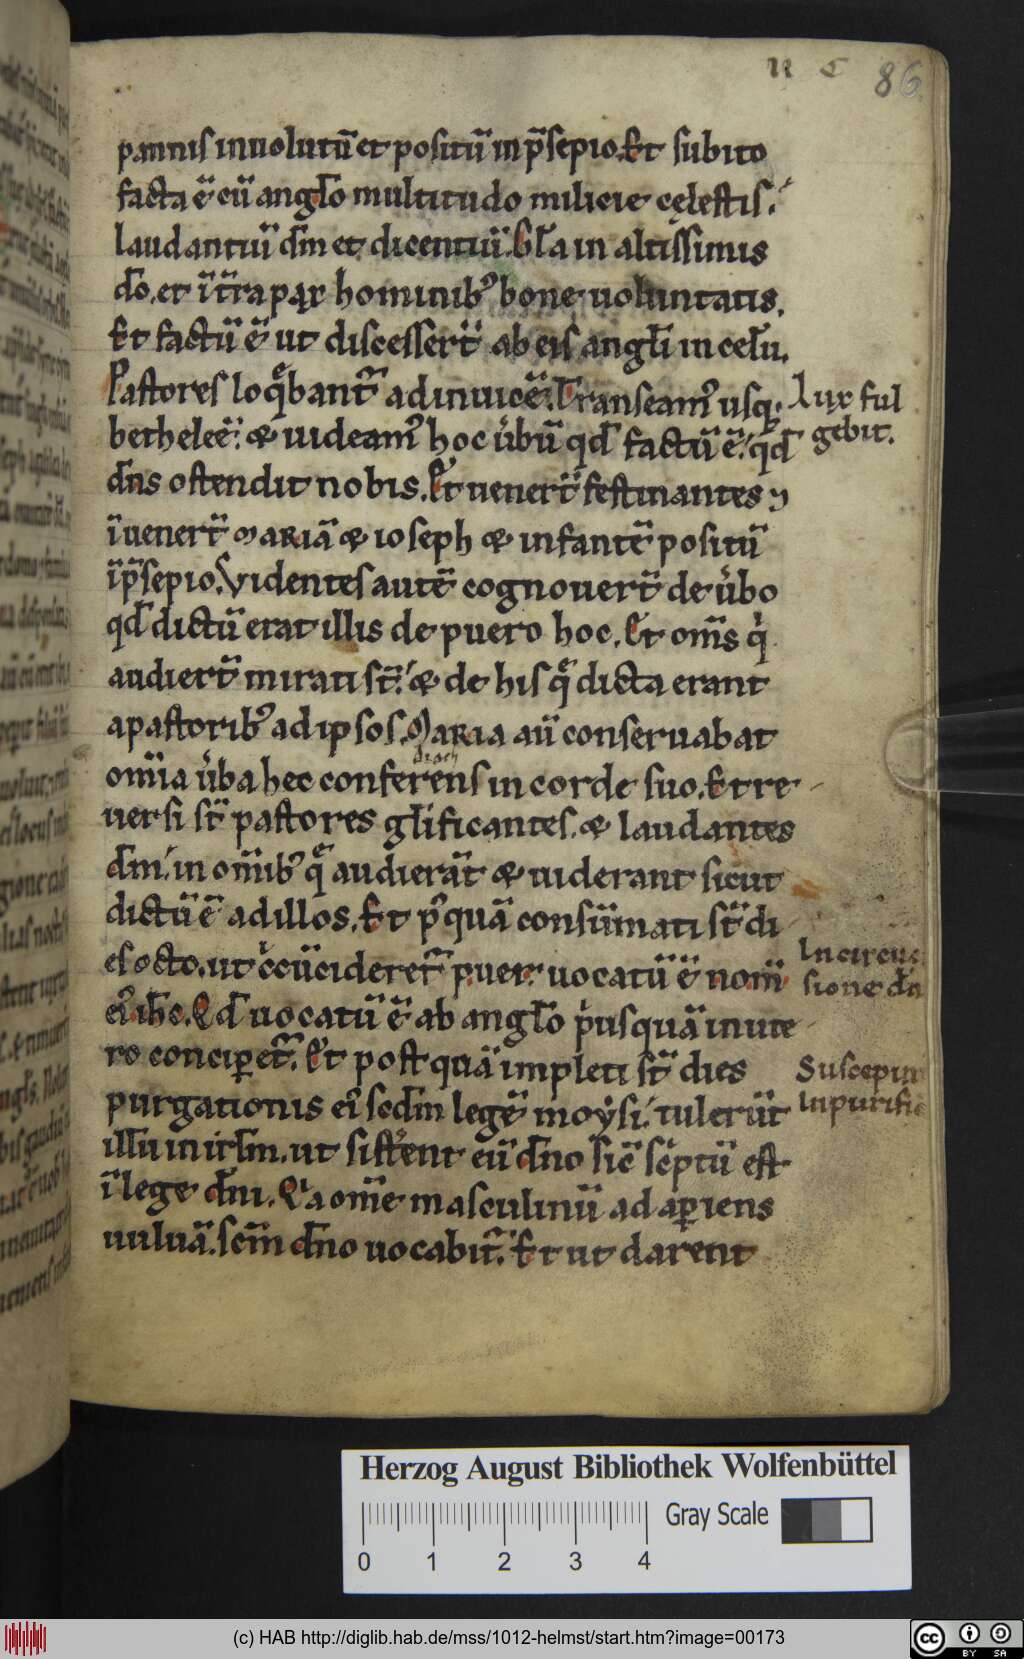 86
pannis inuolutū et positū in p̄sepio. Et subito
facta ē cū angl̄o multitudo milicie cęlestis.
laudantiū d̄m et dicentiū. Gl̄a in altissimis
d̄o. et ī t̄ra pax hominib᾽ bone uoluntatis.
Et factū ē ut discesser̄t ab eis angl̄i in cel̄u.
Pastores loq̄bant᷑ ad inuicē. Transeam᾽ usq;
Lux ful
bethleē. & uideam᾽ hoc u̇bū qd̄ factū ē. qd̄
gebit.
d̄ns ostendit nobis. Et uener̄t festinantes ⁊
īuener̄t MARIĀ & ioseph & infantē positū
ī p̄sepio. Videntes autē cognouer̄t de u̇bo
qd̄ dictū erat illis de puero hoc. Et om̄s q̇
audier̄t mirati st̄. & de his q̄ dicta erant
a pastorib᾽ ad ipsos. MARIA aū conseruabat
om̄ia u̇ba hec conferens in corde suo. Et re
uersi st̄ pastores gl̄ificantes. & laudantes
d̄m. in om̄ib᾽ q̄ audierāt & uiderant sicut
dictū ē ad illos. Et p᾽quā consūmati st̄ di
es octo. ut c̄cūcideret᷑ puer. uocatū ē nom̄
In circuc
ei᾽ ih̄c. Qd̄ uocatū ē ab angl̄o p̓usquā in ute
sione d̄n
ro conciꝑet᷑. Et postquā impleti st̄ dies
Suscepim
purgationis ei᾽ scd̄m legē moẏsi. tulerūt
In purific
ill̄u in irl̄m. ut sist̓ent eū d̄no sic̄ sc̓ptū est
ī lege d̄ni. Q̓a om̄e masculinū adaꝑiens
uuluā. sc̄m d̄no uocabit᷑. Et ut darent
Herzog August Bibliothek Wolfenbüttel
Gray Scale
0 1 2 3 4
(c) HAB http://diglib.hab.de/mss/1012-helmst/start.htm?image=00173
cc BY SA